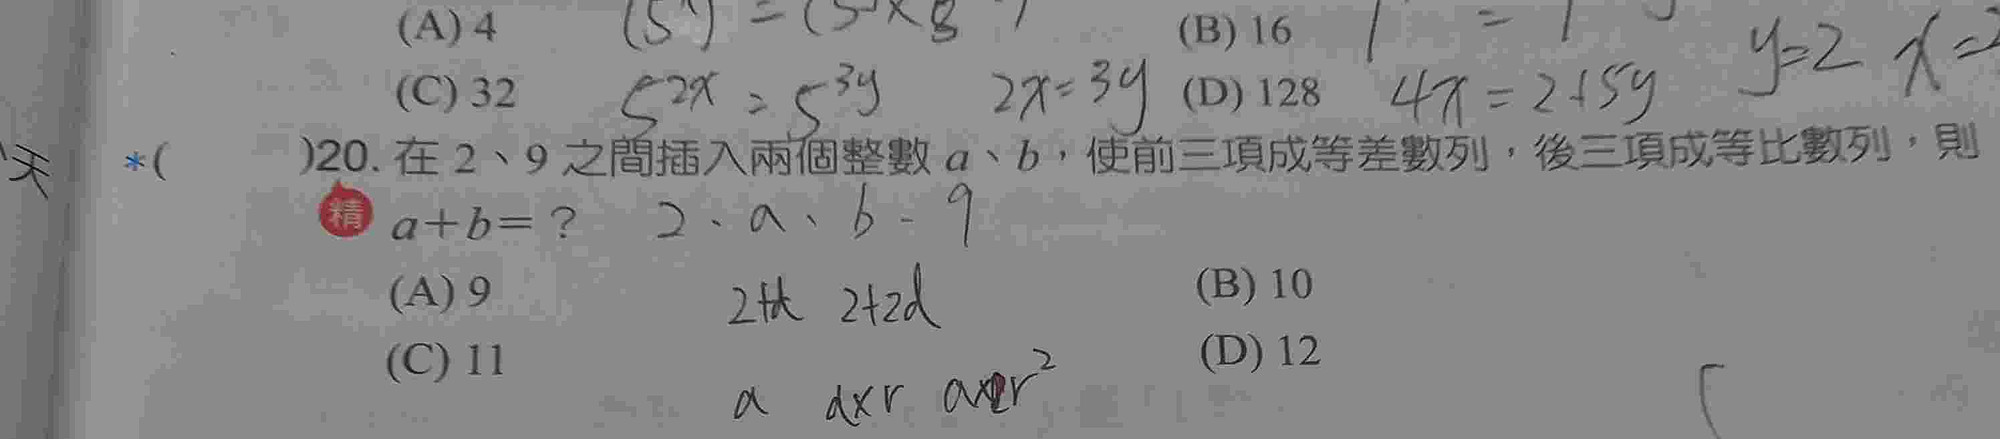 (A) 4 (B) 16
(C) 32 5^{2x} = 5^{3y} 2x=3y (D) 128 4x=2+5y y=2
天 *( )20. 在 2、9 之間插入兩個整數 a、b，使前三項成等差數列，後三項成等比數列，則
精 a+b=？ 2、a、b - 9
(A) 9 (B) 10
2+d 2+2d
(C) 11 (D) 12
a a×r